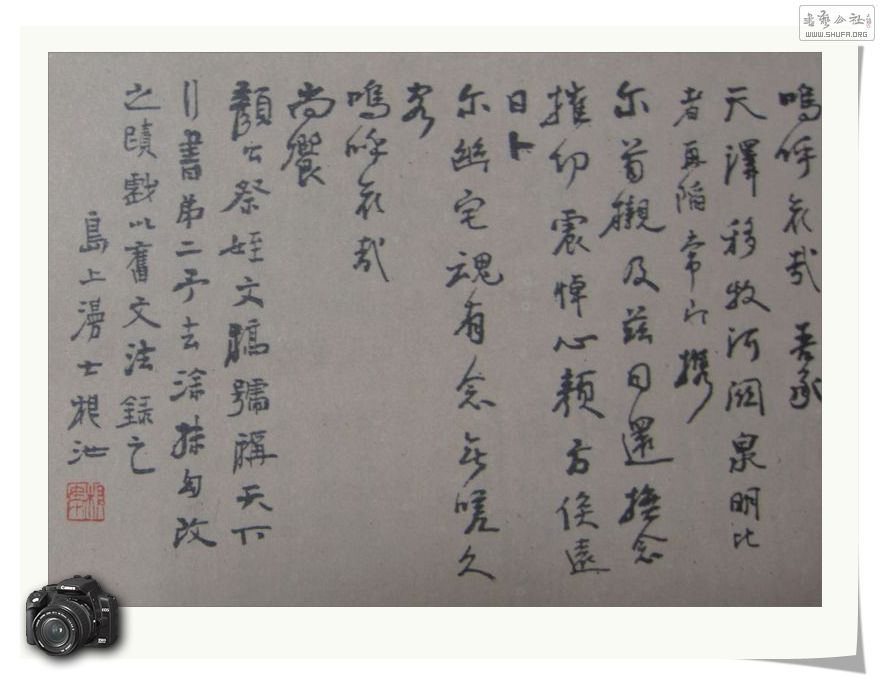 嗚呼哀哉 吾承
天澤移牧河關泉明比
者再陷常山携
尔首櫬及茲同還撫念
摧切震悼心顏方俟遠
日卜
尔幽宅魂有念无嗟久
客
嗚呼哀哉
尚饗
顏公祭姪文稿號稱天下
行書弟二予去涂抹勾改
之蹟戲以舊文法錄之
島上漫士根池
書藝公社
WWW.SHUFA.ORG
Canon
EOS